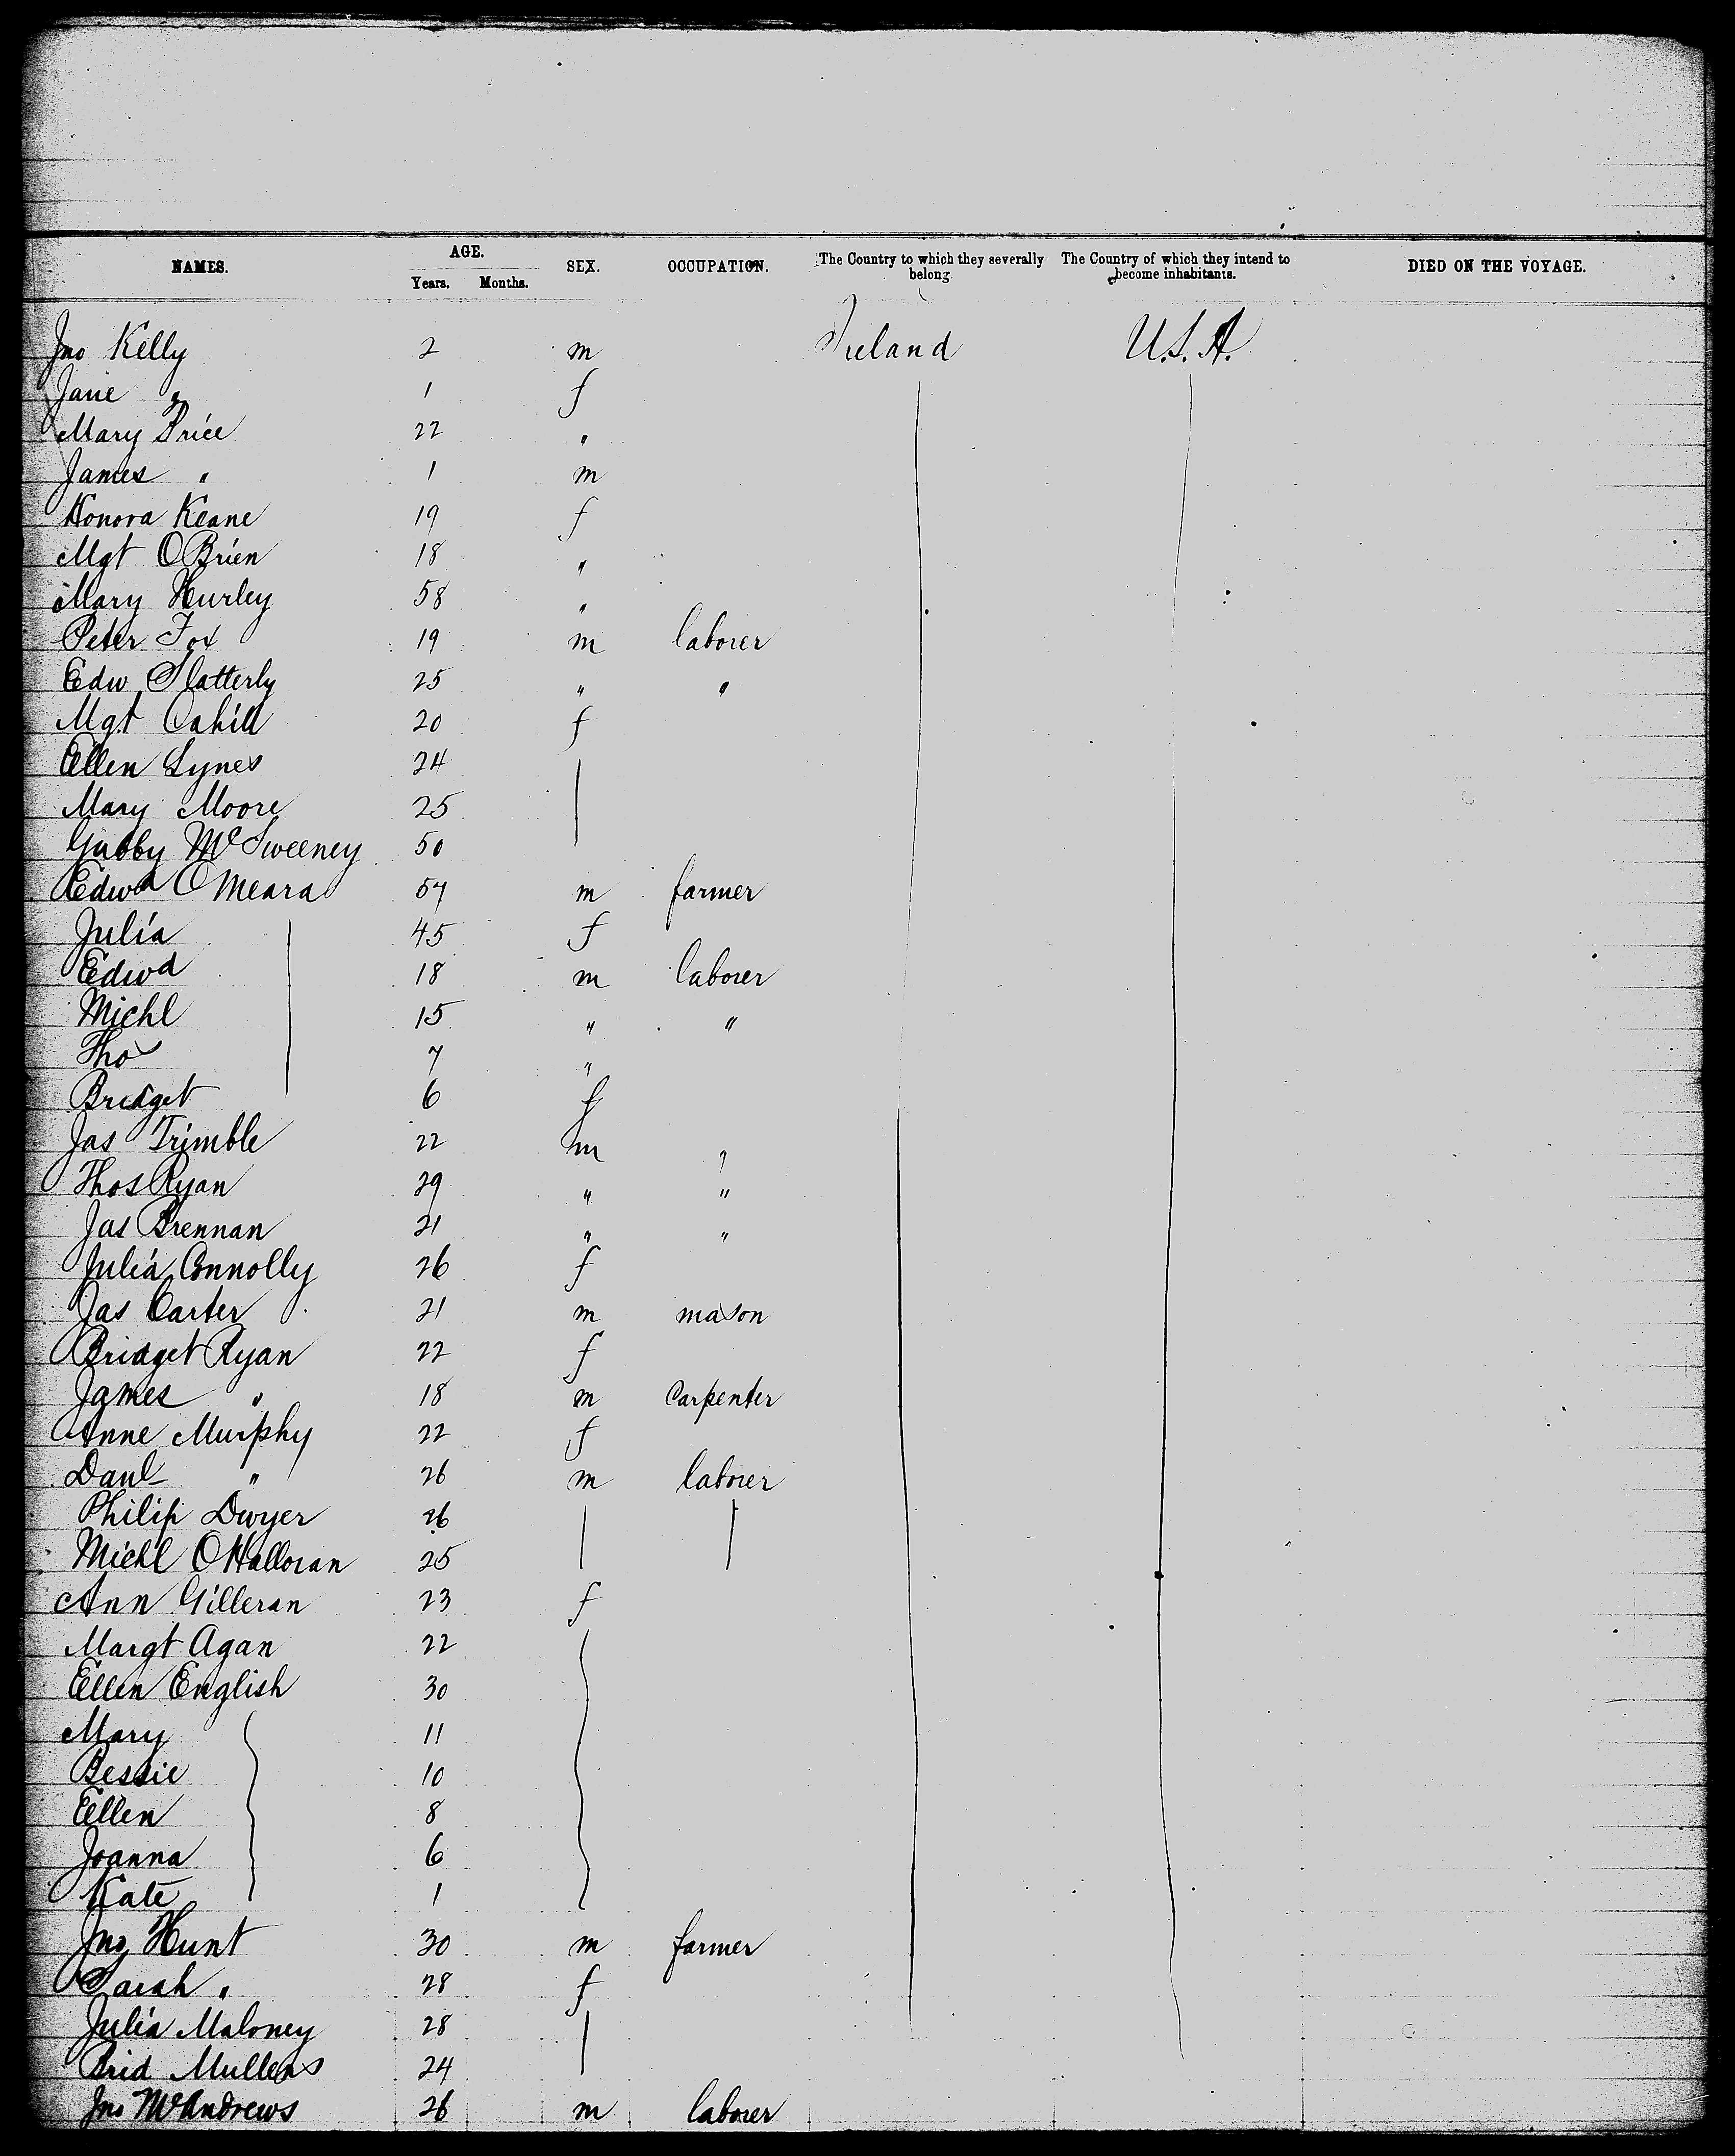 NAMES. AGE. SEX. OCCUPATION. The Country to which they severally belong. The Country of which they intend to become inhabitants. DIED ON THE VOYAGE.
Years. Months.
Jno Kelly 2 m Ireland U.S.A.
Jane " 1 f
Mary Price 22 "
James " 1 m
Honora Keane 19 f
Mgt OBrien 18 "
Mary Hurley 58 "
Peter Fox 19 m laborer
Edw Slatterly 25 " "
Mgt Cahill 20 f
Ellen Lynes 24
Mary Moore 25
Gubby McSweeney 50
Edwd OMeara 57 m farmer
Julia 45 f
Edwd 18 m laborer
Michl 15 " "
Thos 7 "
Bridget 6 f
Jas Trimble 22 m "
Thos Ryan 29 " "
Jas Brennan 21 " "
Julia Connolly 26 f
Jas Carter 21 m mason
Bridget Ryan 22 f
James " 18 m Carpenter
Anne Murphy 22 f
Danl " 26 m laborer
Philip Dwyer 26
Michl OHalloran 25
Ann Gilleran 23 f
Margt Agan 22
Ellen English 30
Mary 11
Bessie 10
Ellen 8
Joanna 6
Kate 1
Jno Hunt 30 m farmer
Sarah " 28 f
Julia Maloney 28
Brid Mullens 24
Jno McAndrews 26 m laborer